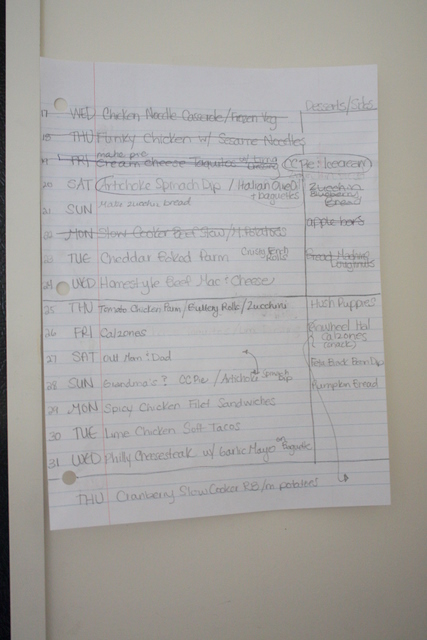 Desserts/Sides
17 WED Chicken Noodle Casserole/Frozen Veg
18 THU Funky Chicken w/ Sesame Noodles
make pie
19 FRI Cream Cheese Taquitos w/ CC Pie: icecream
20 SAT Artichoke Spinach Dip / Italian + baguettes Zucchini Blueberry Bread
21 SUN Make zucchini bread
22 MON Slow Cooker Beef Stew/M Potatoes apple bars
23 TUE Cheddar Baked Parm Crusty Bread Bread Machine
24 WED Homestyle Beef Mac + Cheese
25 THU Tomato Chicken Parm/Buttery Rolls/Zucchini Hush Puppies
26 FRI Calzones Pinwheel
calzones
(snack)
27 SAT Call Mom + Dad Black Bean Dip
28 SUN Grandma's? CC Pie / Artichoke Spinach Dip Pumpkin Bread
29 MON Spicy Chicken Filet Sandwiches
30 TUE Lime Chicken Soft Tacos
31 WED Philly Cheesesteak w/ Garlic Mayo on Baguette
THU Cranberry Slow Cooker RB/m.potatoes